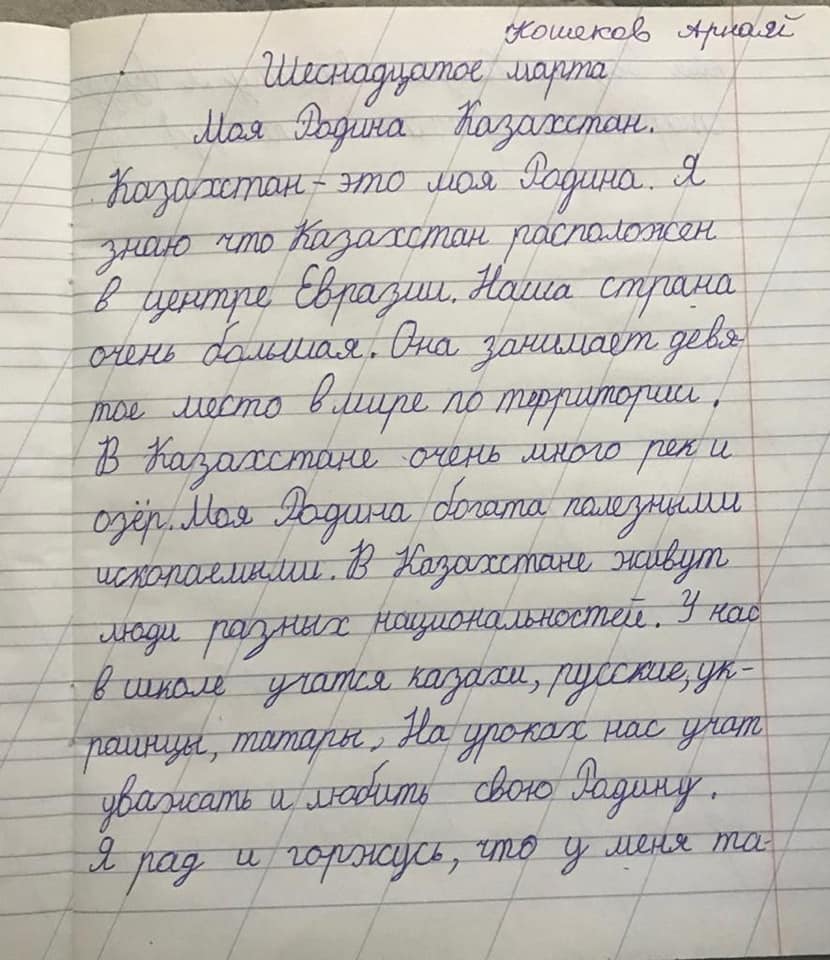 Кошеков Арнай
Шеснадцатое марта
Моя Родина Казахстан.
Казахстан - это моя Родина. Я
знаю что Казахстан расположен
в центре Евразии. Наша страна
очень большая. Она занимает девя-
тое место в мире по территории.
В Казахстане очень много рек и
озёр. Моя Родина богата полезными
ископаемыми. В Казахстане живут
люди разных национальностей. У нас
в школе учатся казахи, русские, ук-
раинцы, татары, На уроках нас учат
уважать и любить свою Родину.
Я рад и горжусь, что у меня та-